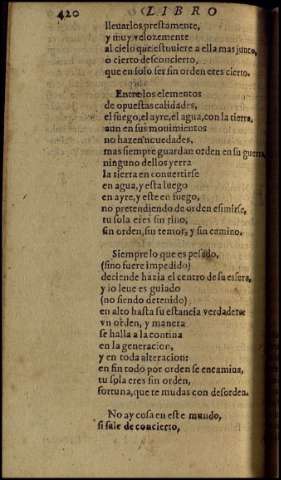 420 LIBRO
lleuarlos prestamente,
y muy velozemente
al cielo que estuuiere a ella mas junto,
o cierto desconcierto,
que en solo ser sin orden eres cierto.
Entre los elementos
de opuestas calidades,
el fuego, el ayre, el agua, con la tierra,
aun en sus mouimientos
no hazen nouedades,
mas siempre guardan orden en su guerra
ninguno dellos yerra
la tierra en conuertirse
en agua, y esta luego
en ayre, y este en fuego,
no pretendiendo de orden esimirse,
tu sola eres sin tino,
sin orden, sin temor, y sin camino.
Siempre lo que es pesado,
(sino fuere impedido)
deciende hazia el centro de su esfera,
y lo leue es guiado
(no siendo detenido)
en alto hasta su estancia verdadera
vn orden, y manera
se halla a la contina
en la generacion,
y en toda alteracion:
en fin todo por orden se encamina,
tu sola eres sin orden,
fortuna, que te mudas con desorden.
No ay cosa en este mundo,
si sale de concierto,